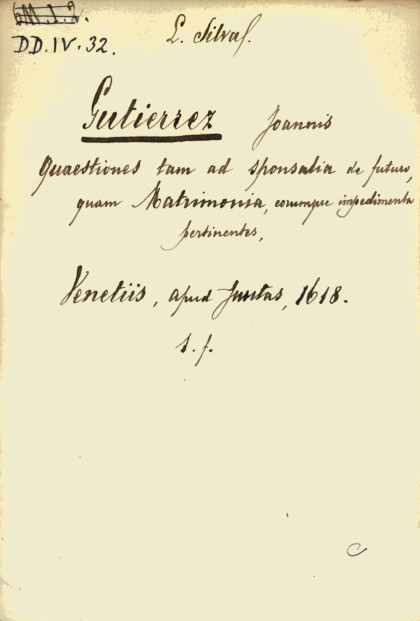 DD.IV.32.
Gutierrez Joannis
Quaestiones tam ad sponsalia de futuro,
quam Matrimonia, eorumque impedimenta
pertinentes,
Venetiis, apud Juntas, 1618.
1. f.